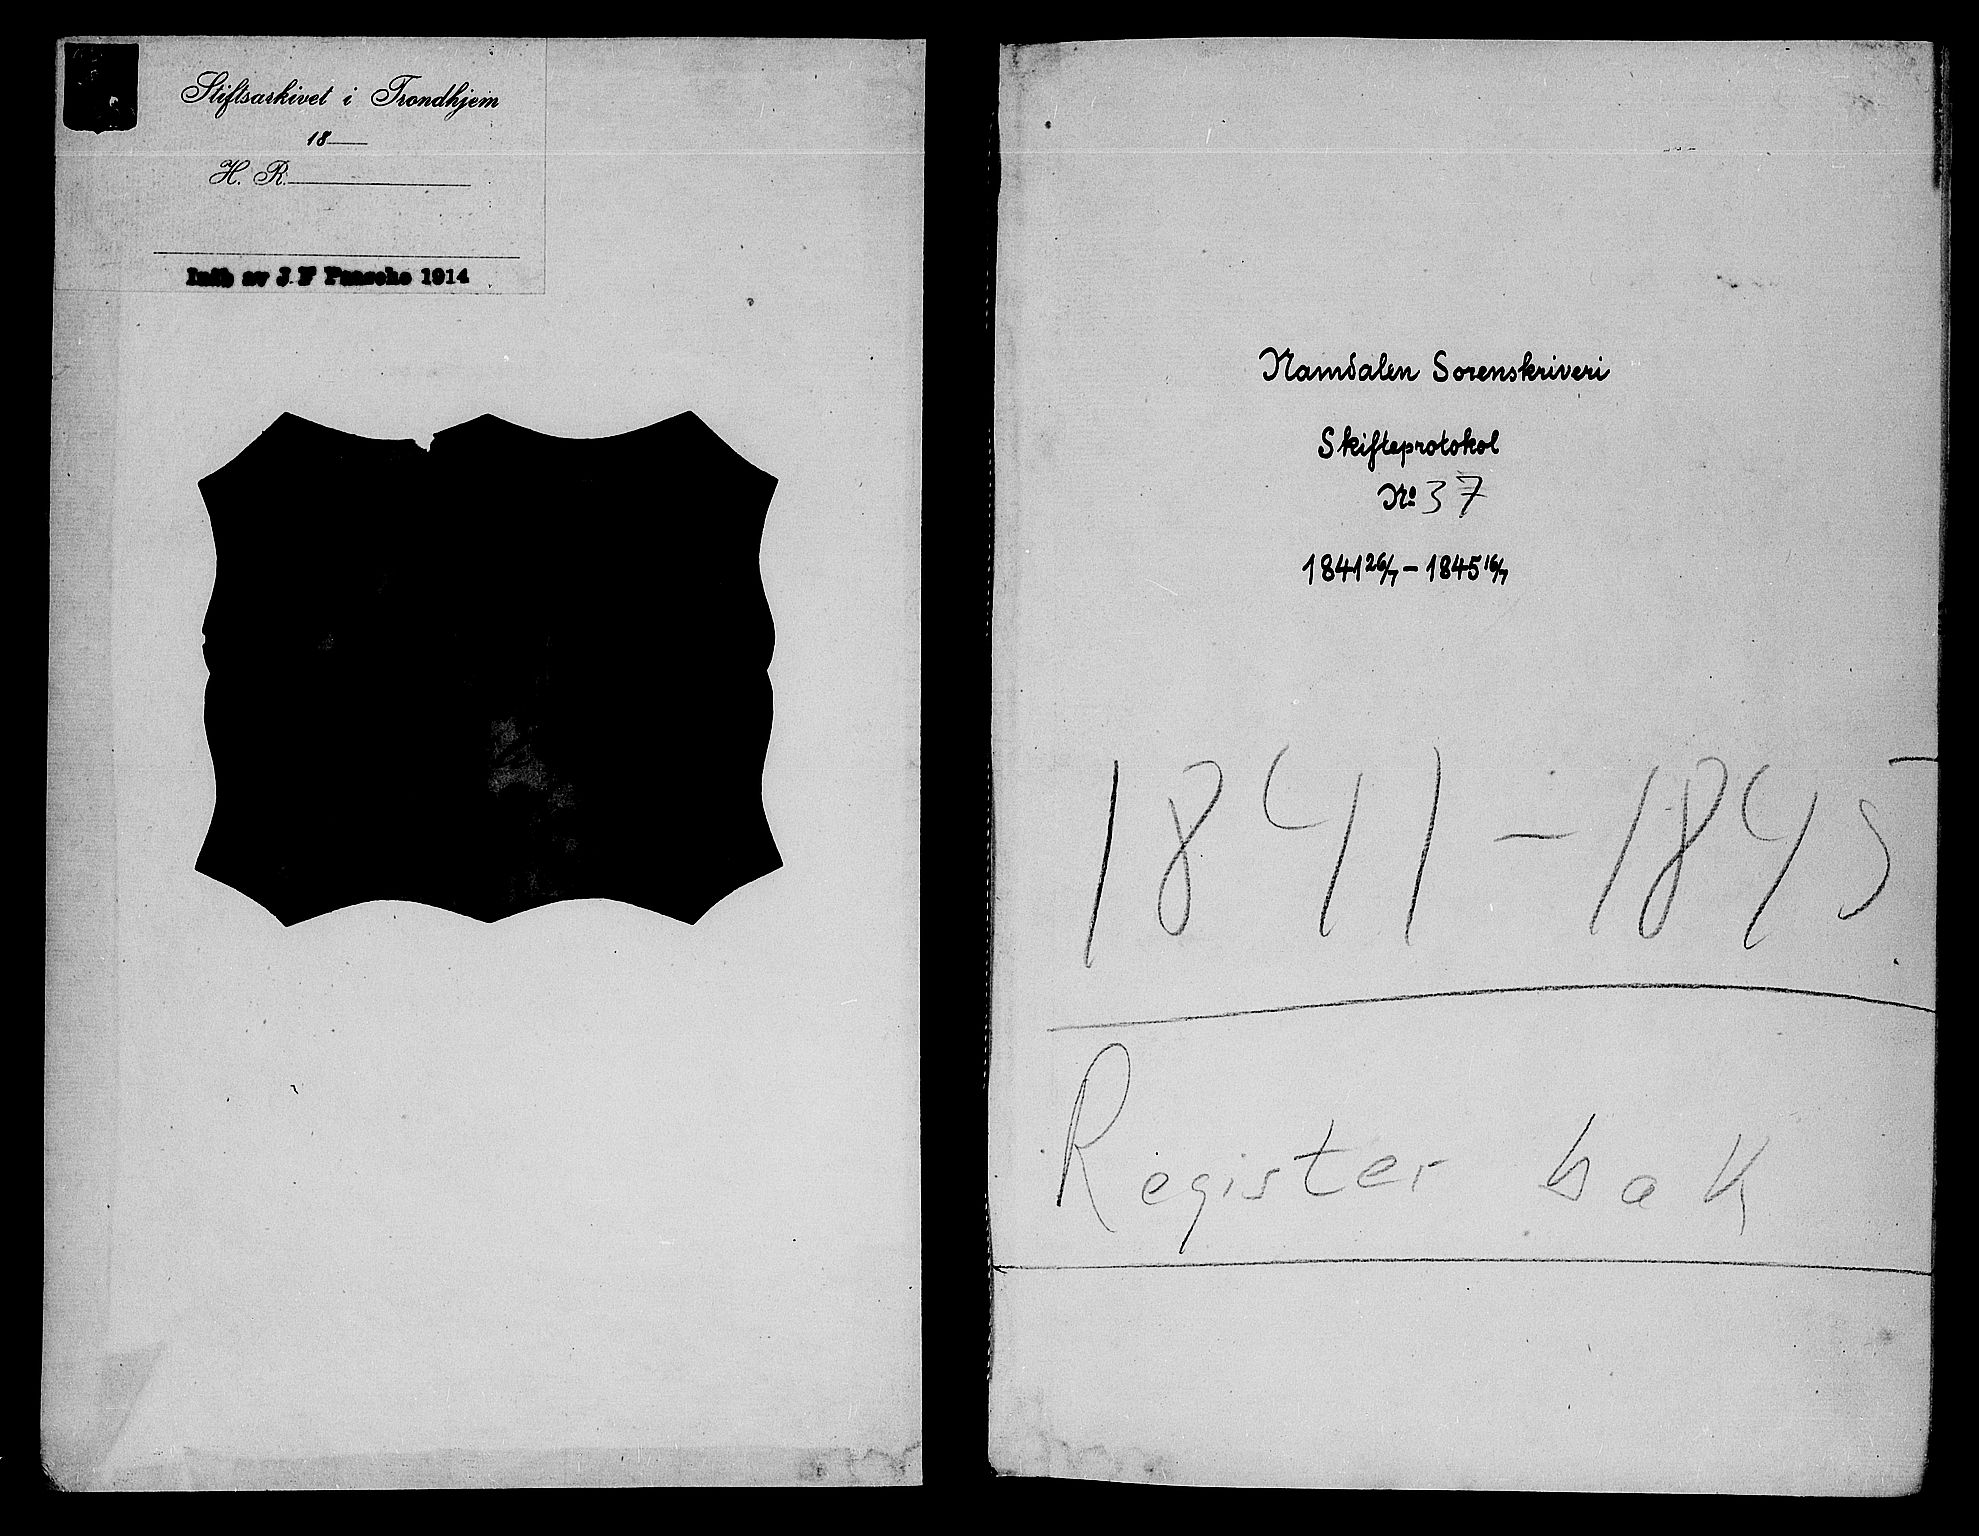 Stiftsarkivet i Trondhjem
18
H. R.
Inb av J F Paasche 1914
Namdalen Sorenskriveri
Skifteprotokol
No 37
1841 26/7 - 1845 16/7
1841 - 1845
Register bak